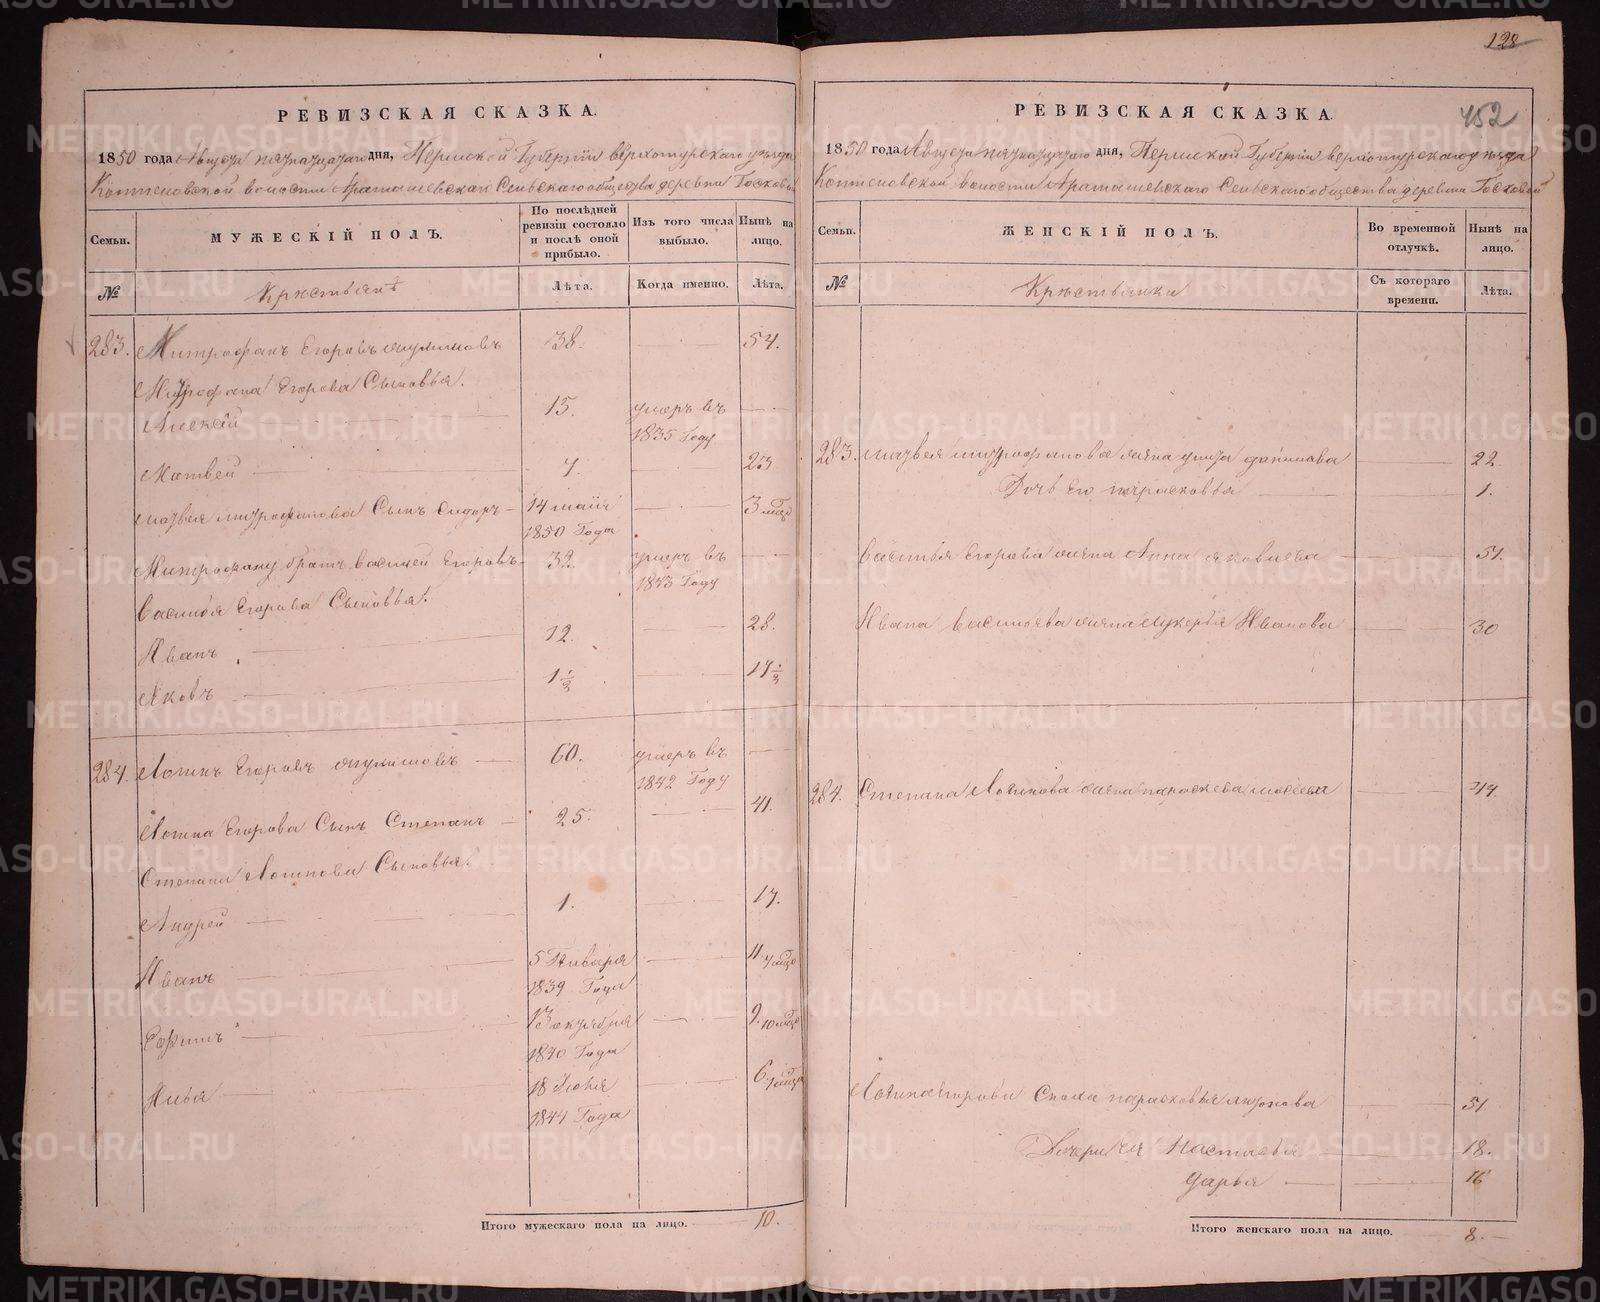 128
452
РЕВИЗСКАЯ СКАЗКА.
1850 года Августа пятнацатаго дня, Пермской Губернiи верхотурскаго уезда
Коптеловской волости Арамашевскаго Сельскаго общества деревни Госковой
Семьи.
МУЖЕСКIЙ ПОЛЪ.
По послѣдней ревизiи состояло и послѣ оной прибыло.
Изъ того числа выбыло.
Нынѣ на лицо.
№
Крестьянѣ
Лѣта.
Когда именно.
Лѣта.
283. Митрофанъ Егоровъ 38. 54.
Митрофана Егорова Сыновья.
Алексей 15. умеръ въ 1835 Году
Матвей 7. 23
матвея митрофанова Сынъ Сидоръ 14 маiя 1850 Года 3 мѣсц
Митрофану братъ василей Егоровъ 32. умеръ въ 1843 Году
василья Егорова Сыновья.
Иванъ 12. 28.
Яковъ 1 1/3 17 1/3
284. Логинъ Егоровъ 60. умеръ въ 1842 Году
Логина Егорова Сынъ Степанъ 25. 41.
Степана Логинова Сыновья.
Андрей 1. 17.
Иванъ 5 Генваря 1839 Года 11. 7 мѣсц
Ефимъ 13 октября 1840 Года 9. 10 мѣсц
Илья 18 Июня 1844 Года 6. 1 мѣсц
Итого мужескаго пола на лицо. 10.
РЕВИЗСКАЯ СКАЗКА.
1850 года Августа пятнацатаго дня, Пермской Губернiи верхотурскаго уезда
Коптеловской волости Арамашевскаго Сельскаго общества деревни Госковой
Семьи.
ЖЕНСКIЙ ПОЛЪ.
Во временной отлучкѣ.
Нынѣ на лицо.
№
Крестьянки
Съ котораго времени.
Лѣта.
283. матвея митрофанова жена улита данилава 22.
Дочь его парасковья 1.
василья Егорова жена Анна яковлева 51.
Ивана васильева жена лукерья Иванова 30
284. Степана Логинова жена парасковья 44.
Логина Егорова Сноха парасковья 51.
Дочери ея Настасья 18.
дарья 16
Итого женскаго пола на лицо. 8.
METRIKI.GASO-URAL.RU